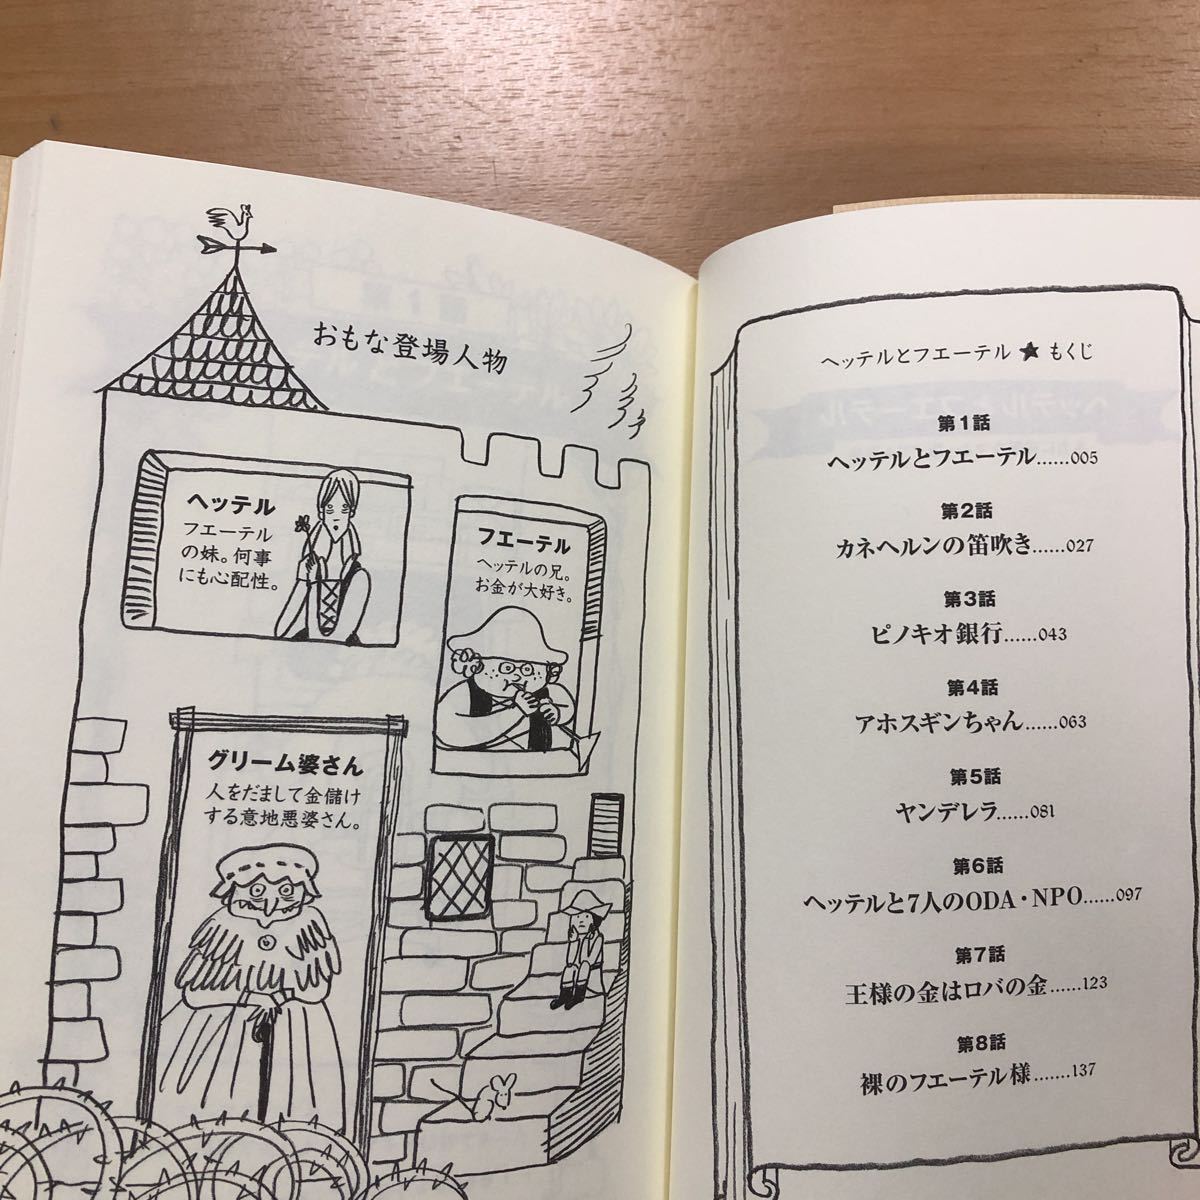 おもな登場人物
ヘッテル
フエーテル
の妹。何事
にも心配性。
フエーテル
ヘッテルの兄。
お金が大好き。
グリーム婆さん
人をだまして金儲け
する意地悪婆さん。
ヘッテルとフエーテル ★ もくじ
第1話
ヘッテルとフエーテル……005
第2話
カネヘルンの笛吹き……027
第3話
ピノキオ銀行……043
第4話
アホスギンちゃん……063
第5話
ヤンデレラ……081
第6話
ヘッテルと7人のODA・NPO……097
第7話
王様の金はロバの金……123
第8話
裸のフエーテル様…….137